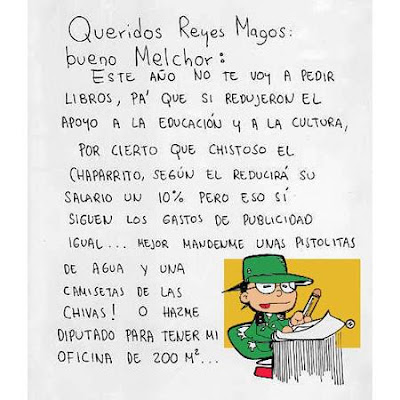 Queridos Reyes Magos:
bueno Melchor:
ESTE AÑO NO TE VOY A PEDIR
LIBROS, PA' QUE SI REDUJERON EL
APOYO A LA EDUCACIÓN Y A LA CULTURA,
POR CIERTO QUE CHISTOSO EL
CHAPARRITO, SEGÚN EL REDUCIRÁ SU
SALARIO UN 10% PERO ESO SÍ
SIGUEN LOS GASTOS DE PUBLICIDAD
IGUAL... MEJOR MANDENME UNAS PISTOLITAS
DE AGUA Y UNA
CAMISETAS DE LAS
CHIVAS! O HAZME
DIPUTADO PARA TENER MI
OFICINA DE 200 M²...